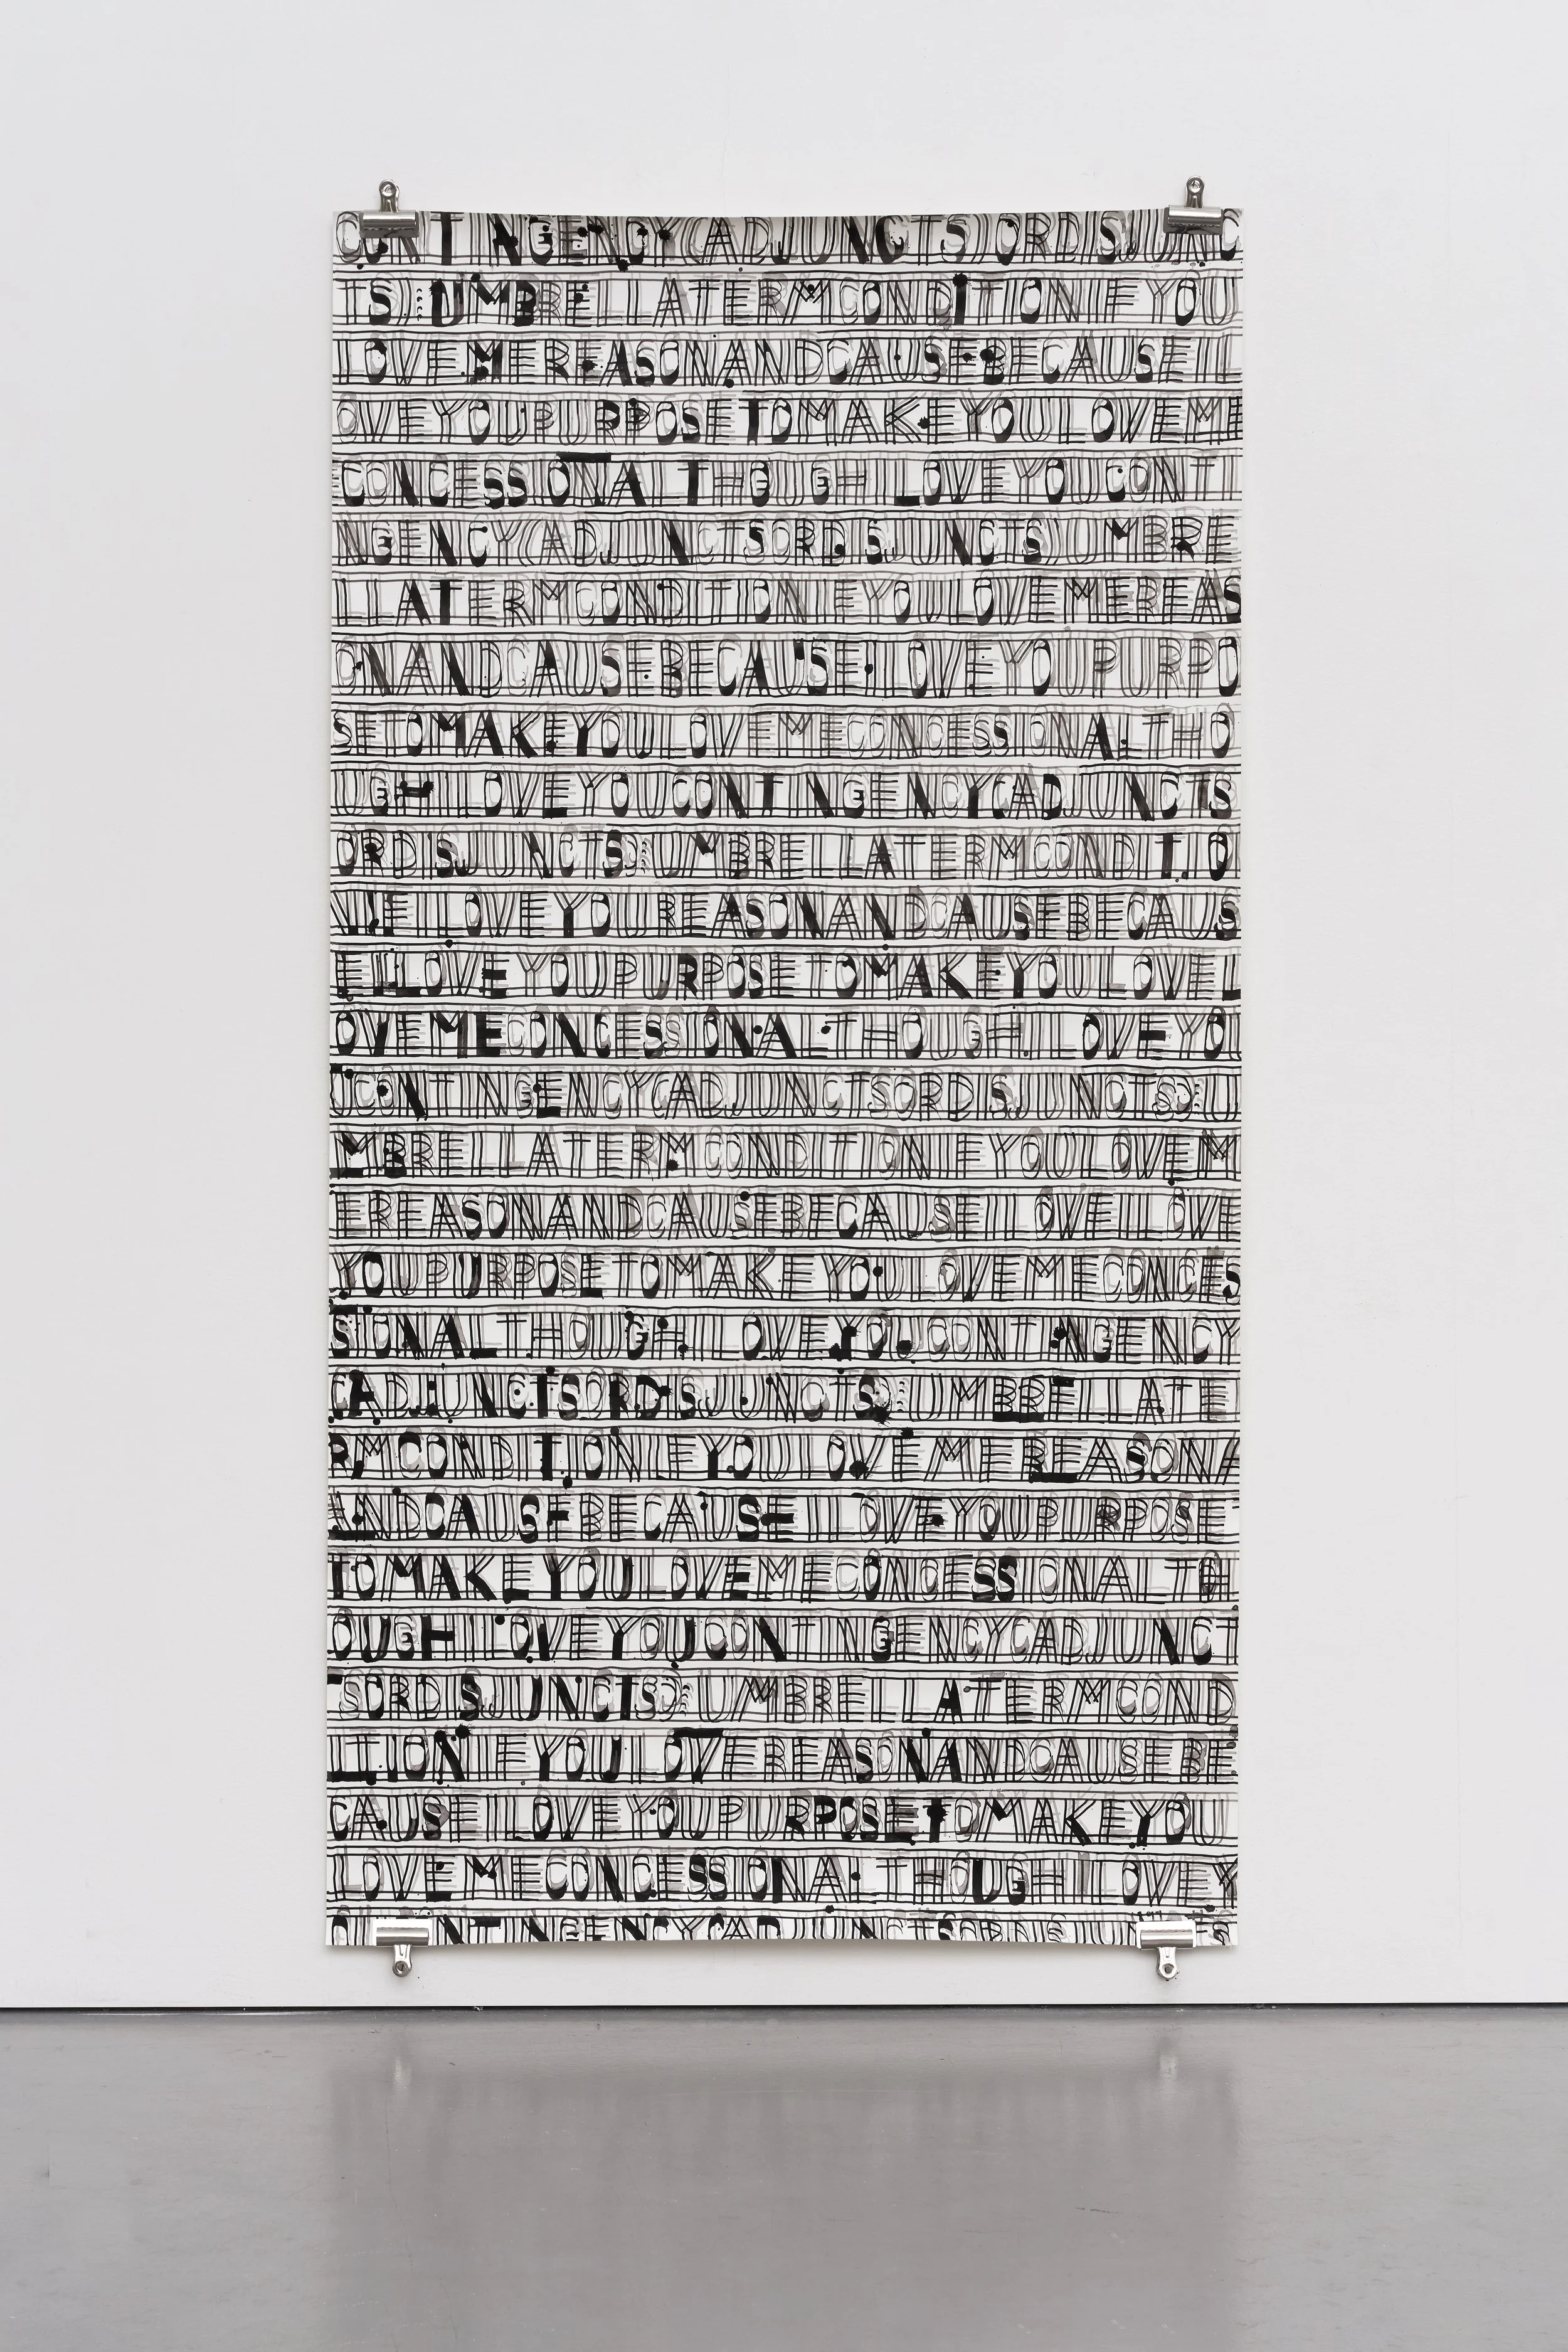 CONTINGENCY(ADJUNCTSORDISJUNC
TS):UMBRELLATERMCONDITIONIFYOU
LOVEMEREASONANDCAUSE:BECAUSEIL
OVEYOUPURPOSETOMAKEYOULOVEME
CONCESSIONALTHOUGHILOVEYOUCONTI
NGENCY(ADJUNCTSORDISJUNCTS)UMBRE
LLATERMCONDITIONIFYOULOVEMEREAS
ONANDCAUSE:BECAUSEILOVEYOUPURPO
SETOMAKEYOULOVEMECONCESSIONALTHO
UGHILOVEYOUCONTINGENCY(ADJUNCTS
ORDISJUNCTS):UMBRELLATERMCONDITIO
NIFILOVEYOUREASONANDCAUSEBECAUS
EILOVEYOUPURPOSETOMAKEYOULOVEL
OVEMECONCESSIONALTHOUGHILOVEYO
UCONTINGENCY(ADJUNCTSORDISJUNCTS):U
MBRELLATERMCONDITIONIFYOULOVEM
EREASONANDCAUSEBECAUSEILOVEILOVE
YOUPURPOSETOMAKEYOULOVEMECONCES
SIONALTHOUGHILOVEYOUCONTINGENCY
(ADJUNCTSORDISJUNCTS):UMBRELLATE
RMCONDITIONIFYOULOVEMEREASONA
ANDCAUSEBECAUSEILOVEYOUPURPOSE
TOMAKEYOULOVEMECONCESSIONALTH
OUGHILOVEYOUCONTINGENCY(ADJUNCT
SORDISJUNCTS):UMBRELLATERMCOND
ITIONIFYOULOVEREASONANDCAUSEBE
CAUSEILOVEYOUPURPOSETOMAKEYOU
LOVEMECONCESSIONALTHOUGHILOVEY
OUCONTINGENCY(ADJUNCTSORDISJUNCTS